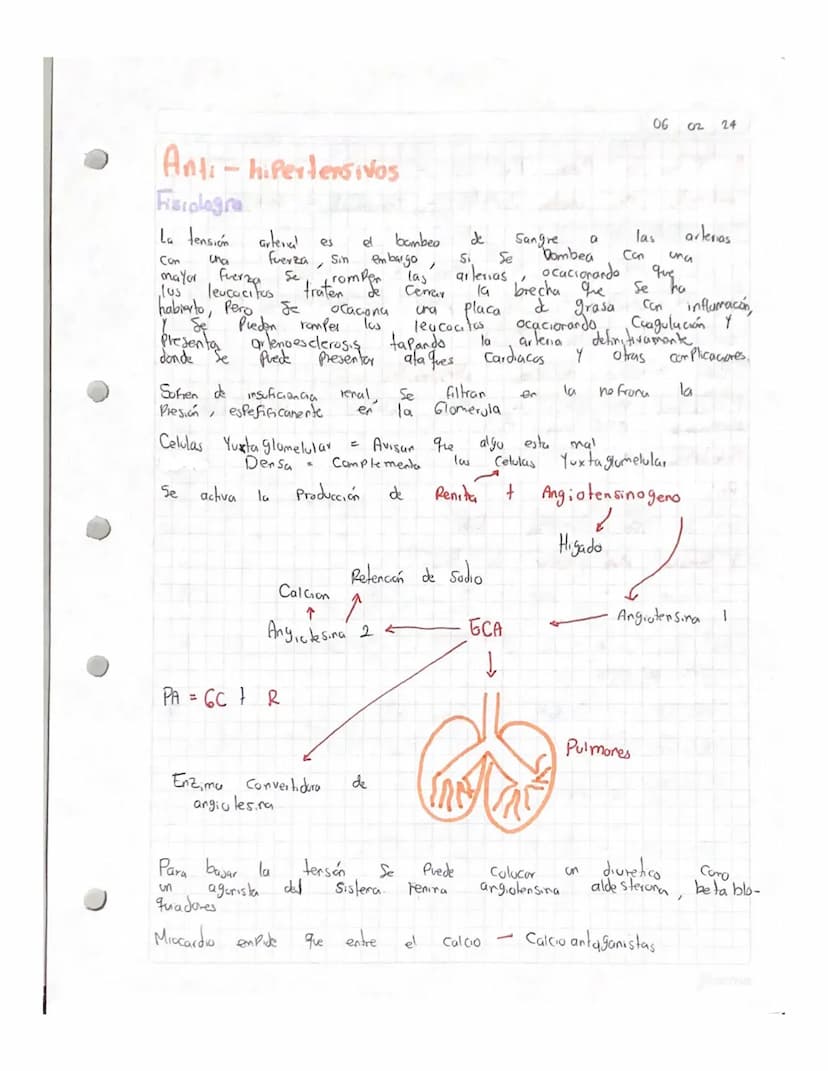 06 02 24
Anti - hipertensivos
Fisiologia
La tensión arterial es el bombeo de sangre a las arterias
con una fuerza, sin embargo, si se bombea con una
mayor fuerza se rompen las arterias, ocacionando que
los leucocitos traten de cerrar la brecha que se ha
habierto, pero se ocaciona una placa d grasa con inflamación,
y se pueden romper los leucocitos ocacionando Coagulación y
presenta arterioesclerosis tapando la arteria definitivamente
donde se puede presentar ataques cardiacos y otras complicaciones.
Sofren de insuficiencia renal, se filtran en la nefrona la
presión, espefificanente en la Glomerula
Celulas Yuxtaglomelular = Avisan que algo esta mal
Densa = Complementa las Celulas Yuxtagomelular
Se activa la Producción de Renita + Angiotensinogeno
Higado
Retención de Sodio
Calcion
Angiotensina 1
Angiotesina 2
ECA
PA = GC + R
Pulmones
Enzima Convertidora de
angiotesina
Para bajar la tensón se puede colocar un diuretico como
un agonista del sistema renina angiotensina aldesterona, betablo-
queadores
Miocardio empide que entre el calcio - Calcioantagonistas